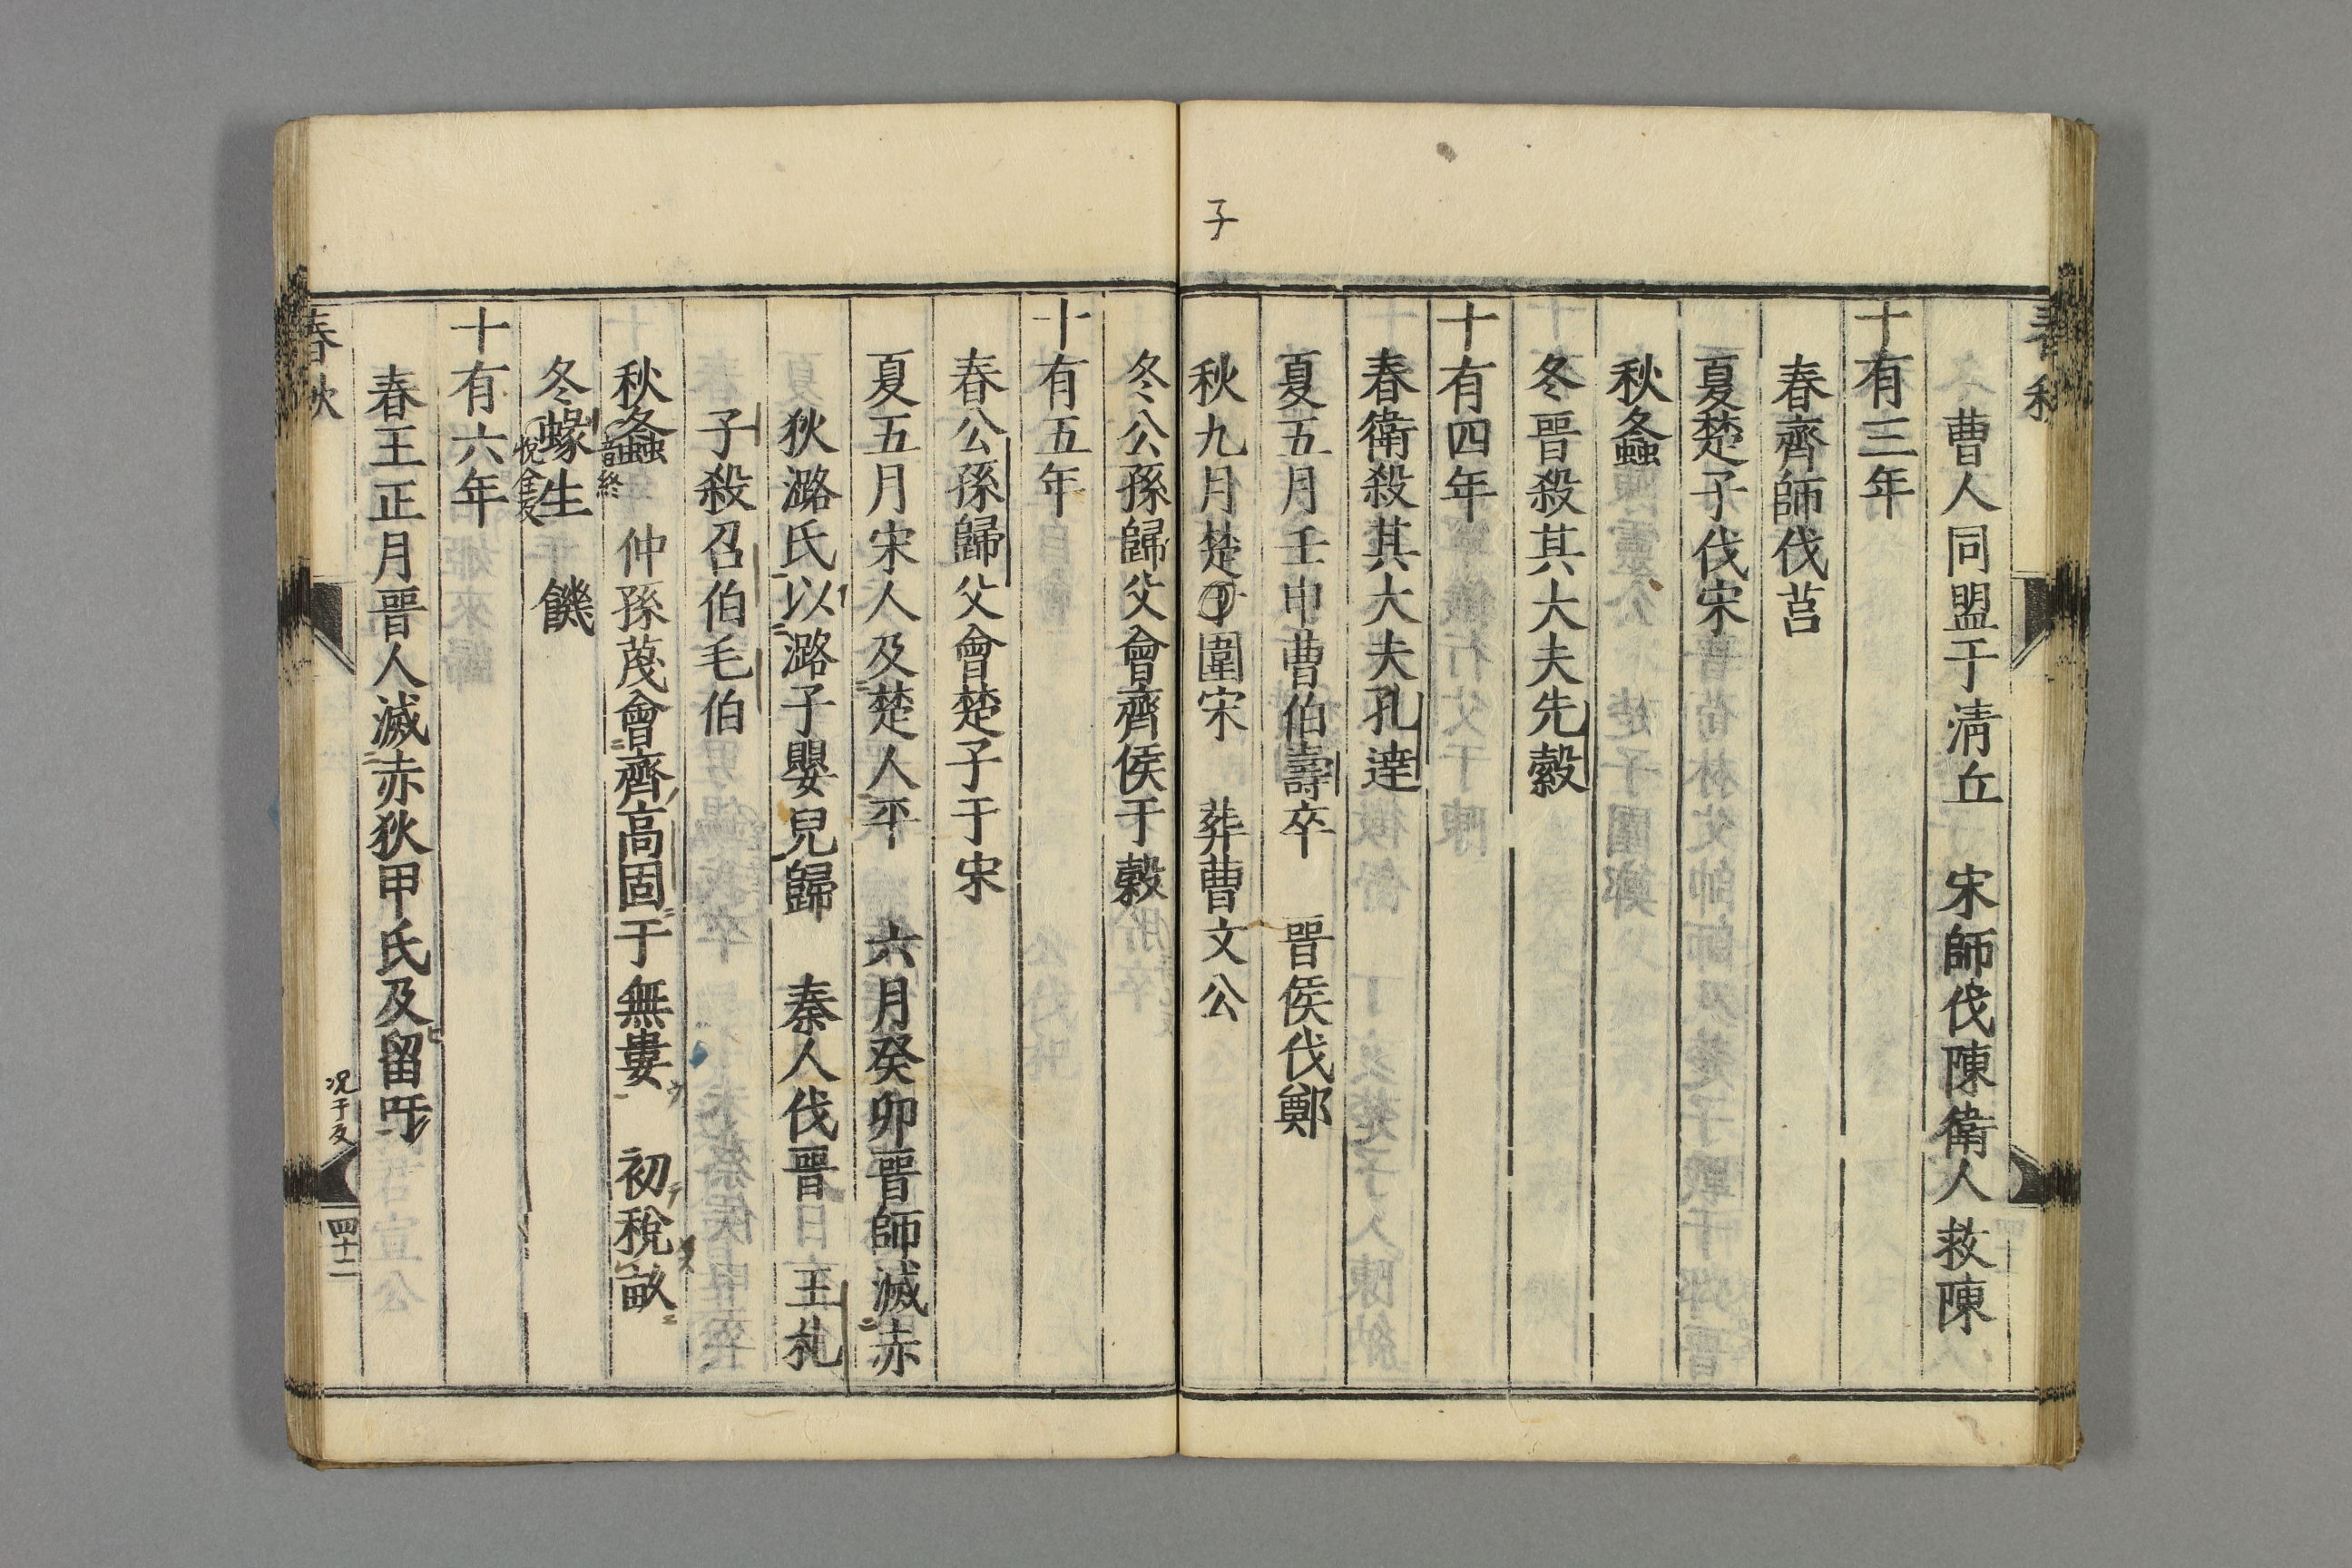 曹人同盟于清丘　宋師伐陳衛人救陳
十有三年
春齊師伐莒
夏楚子伐宋
秋螽
冬晉殺其大夫先縠
十有四年
春衛殺其大夫孔達
夏五月壬申曹伯壽卒　晉侯伐鄭
子
秋九月楚子圍宋　葬曹文公
冬公孫歸父會齊侯于穀
十有五年
春公孫歸父會楚子于宋
夏五月宋人及楚人平　六月癸卯晉師滅赤
狄潞氏以潞子嬰兒歸　秦人伐晉　王札
子殺召伯毛伯
秋螽　仲孫蔑會齊高固于無婁　初稅畝
音終
冬蝝生　饑
悅全反
十有六年
春王正月晉人滅赤狄甲氏及留吁
况于反
春秋
四十二